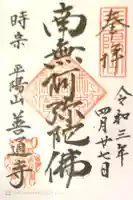 奉拝
令和三年
四月廿七日
南無阿弥陀佛
時宗 平陽山
善道寺